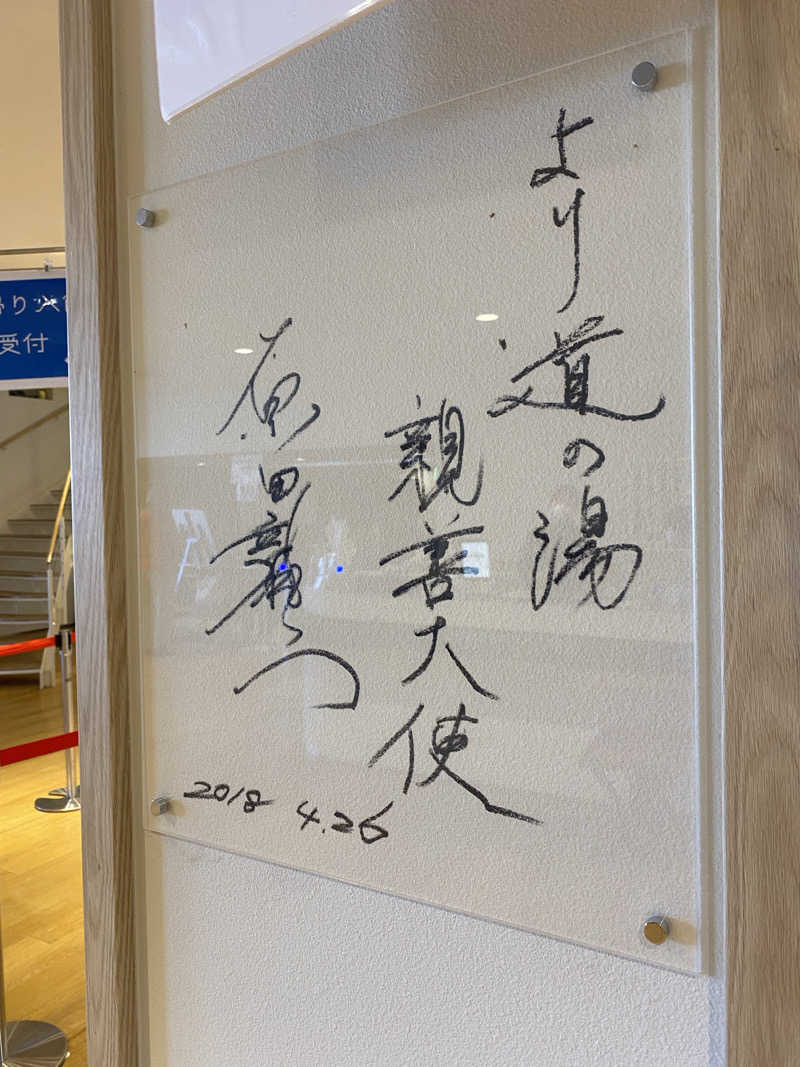 より道の湯
親善大使
原田龍二
2018 4.26
受付